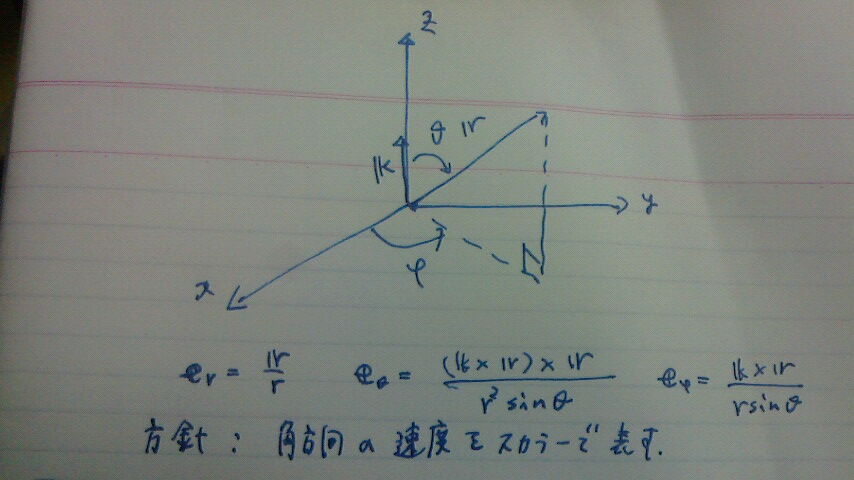 z
θ 𝕣
𝕜
y
φ
x
𝕖r = 𝕣/r 𝕖θ = (𝕜 × 𝕣) × 𝕣 / r² sin θ 𝕖φ = 𝕜 × 𝕣 / r sin θ
方針: 角方向の速度をスカラーで表す.